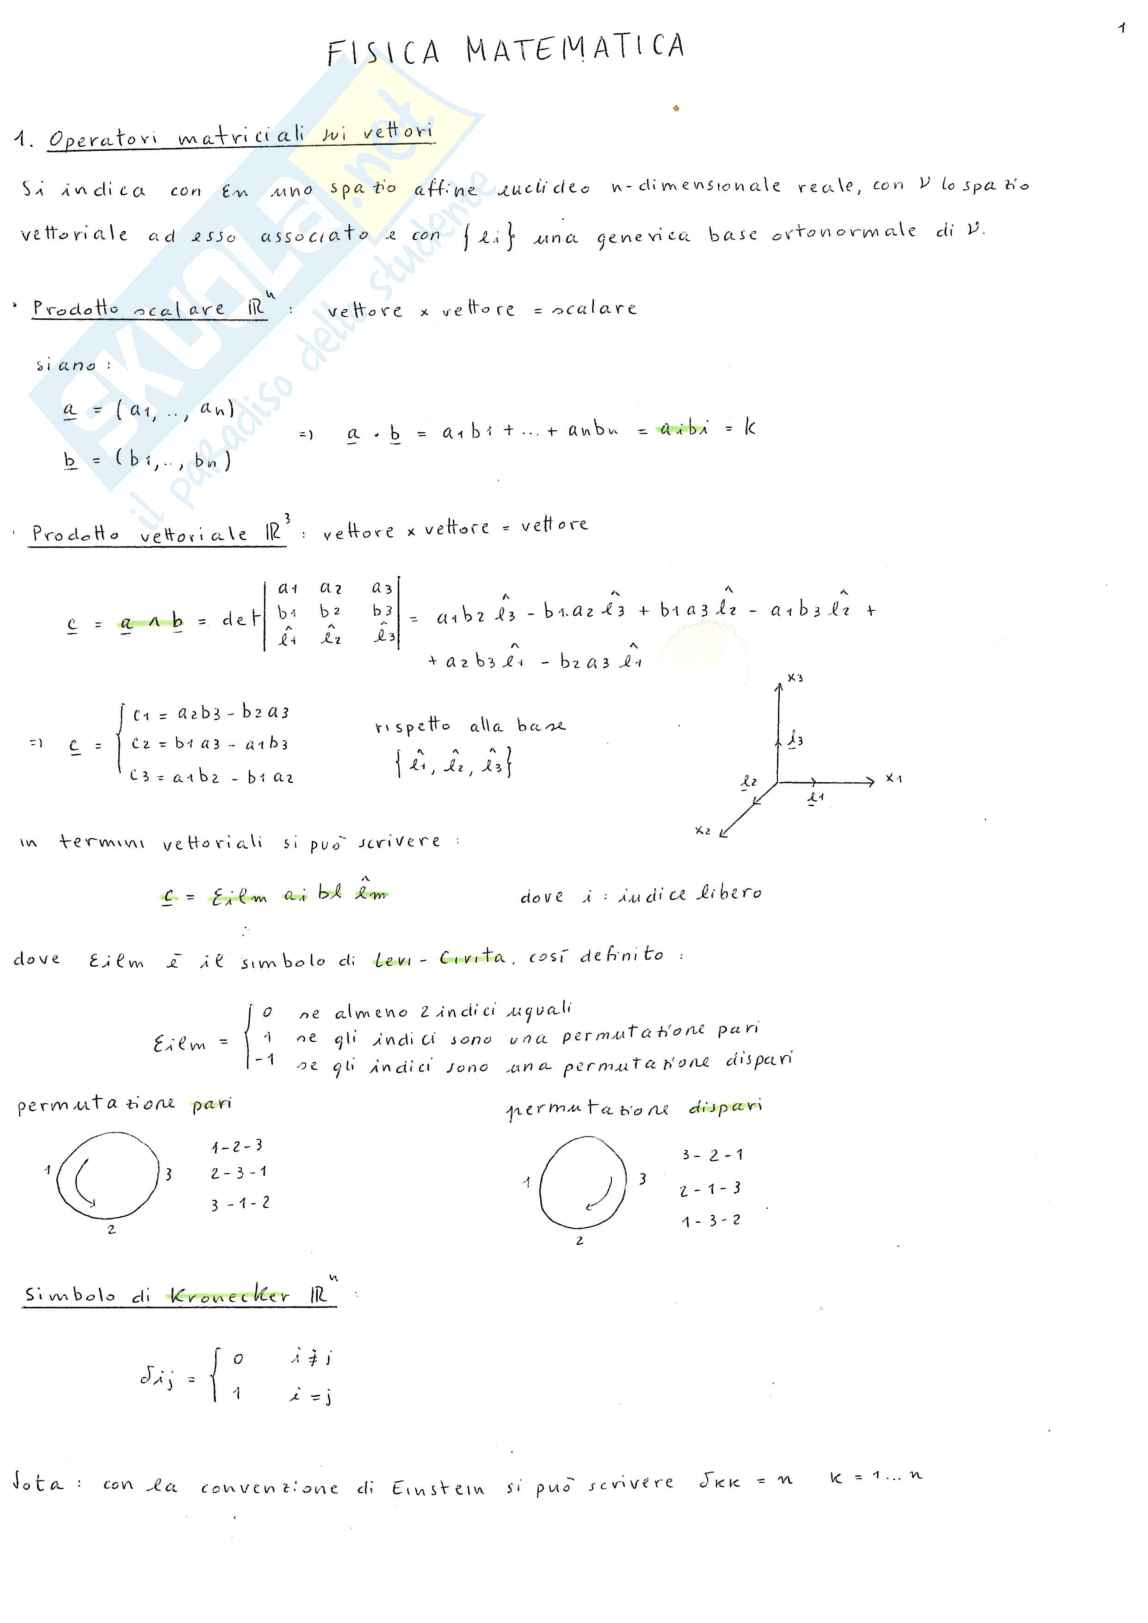 1
FISICA MATEMATICA
SKUOLA.net
il paradiso dello studente
1. Operatori matriciali sui vettori
Si indica con En uno spazio affine euclideo n-dimensionale reale, con V lo spazio
vettoriale ad esso associato e con {ei} una generica base ortonormale di V.
· Prodotto scalare ℝⁿ : vettore x vettore = scalare
siano :
a = (a1, .., an)
=> a · b = a1b1 + ... + anbn = aibi = k
b = (b1, .., bn)
· Prodotto vettoriale ℝ³ : vettore x vettore = vettore
c = a ∧ b = det | a1 a2 a3 |
| b1 b2 b3 | = a1b2 ê3 - b1·a2 ê3 + b1a3 ê2 - a1b3 ê2 +
| ê1 ê2 ê3 |
+ a2b3 ê1 - b2a3 ê1
=> c = { c1 = a2b3 - b2a3
c2 = b1a3 - a1b3
c3 = a1b2 - b1a2
rispetto alla base
{ê1, ê2, ê3}
x3
e3
e2
e1
x1
x2
in termini vettoriali si può scrivere :
c = εilm ai bl êm dove i : indice libero
dove εilm è il simbolo di Levi-Civita, così definito :
εilm = { 0 se almeno 2 indici uguali
1 se gli indici sono una permutazione pari
-1 se gli indici sono una permutazione dispari
permutazione pari
1 3 2
1-2-3
2-3-1
3-1-2
permutazione dispari
1 3 2
3-2-1
2-1-3
1-3-2
Simbolo di Kronecker ℝⁿ :
δij = { 0 i≠j
1 i=j
Nota : con la convenzione di Einstein si può scrivere δkk = n k = 1...n